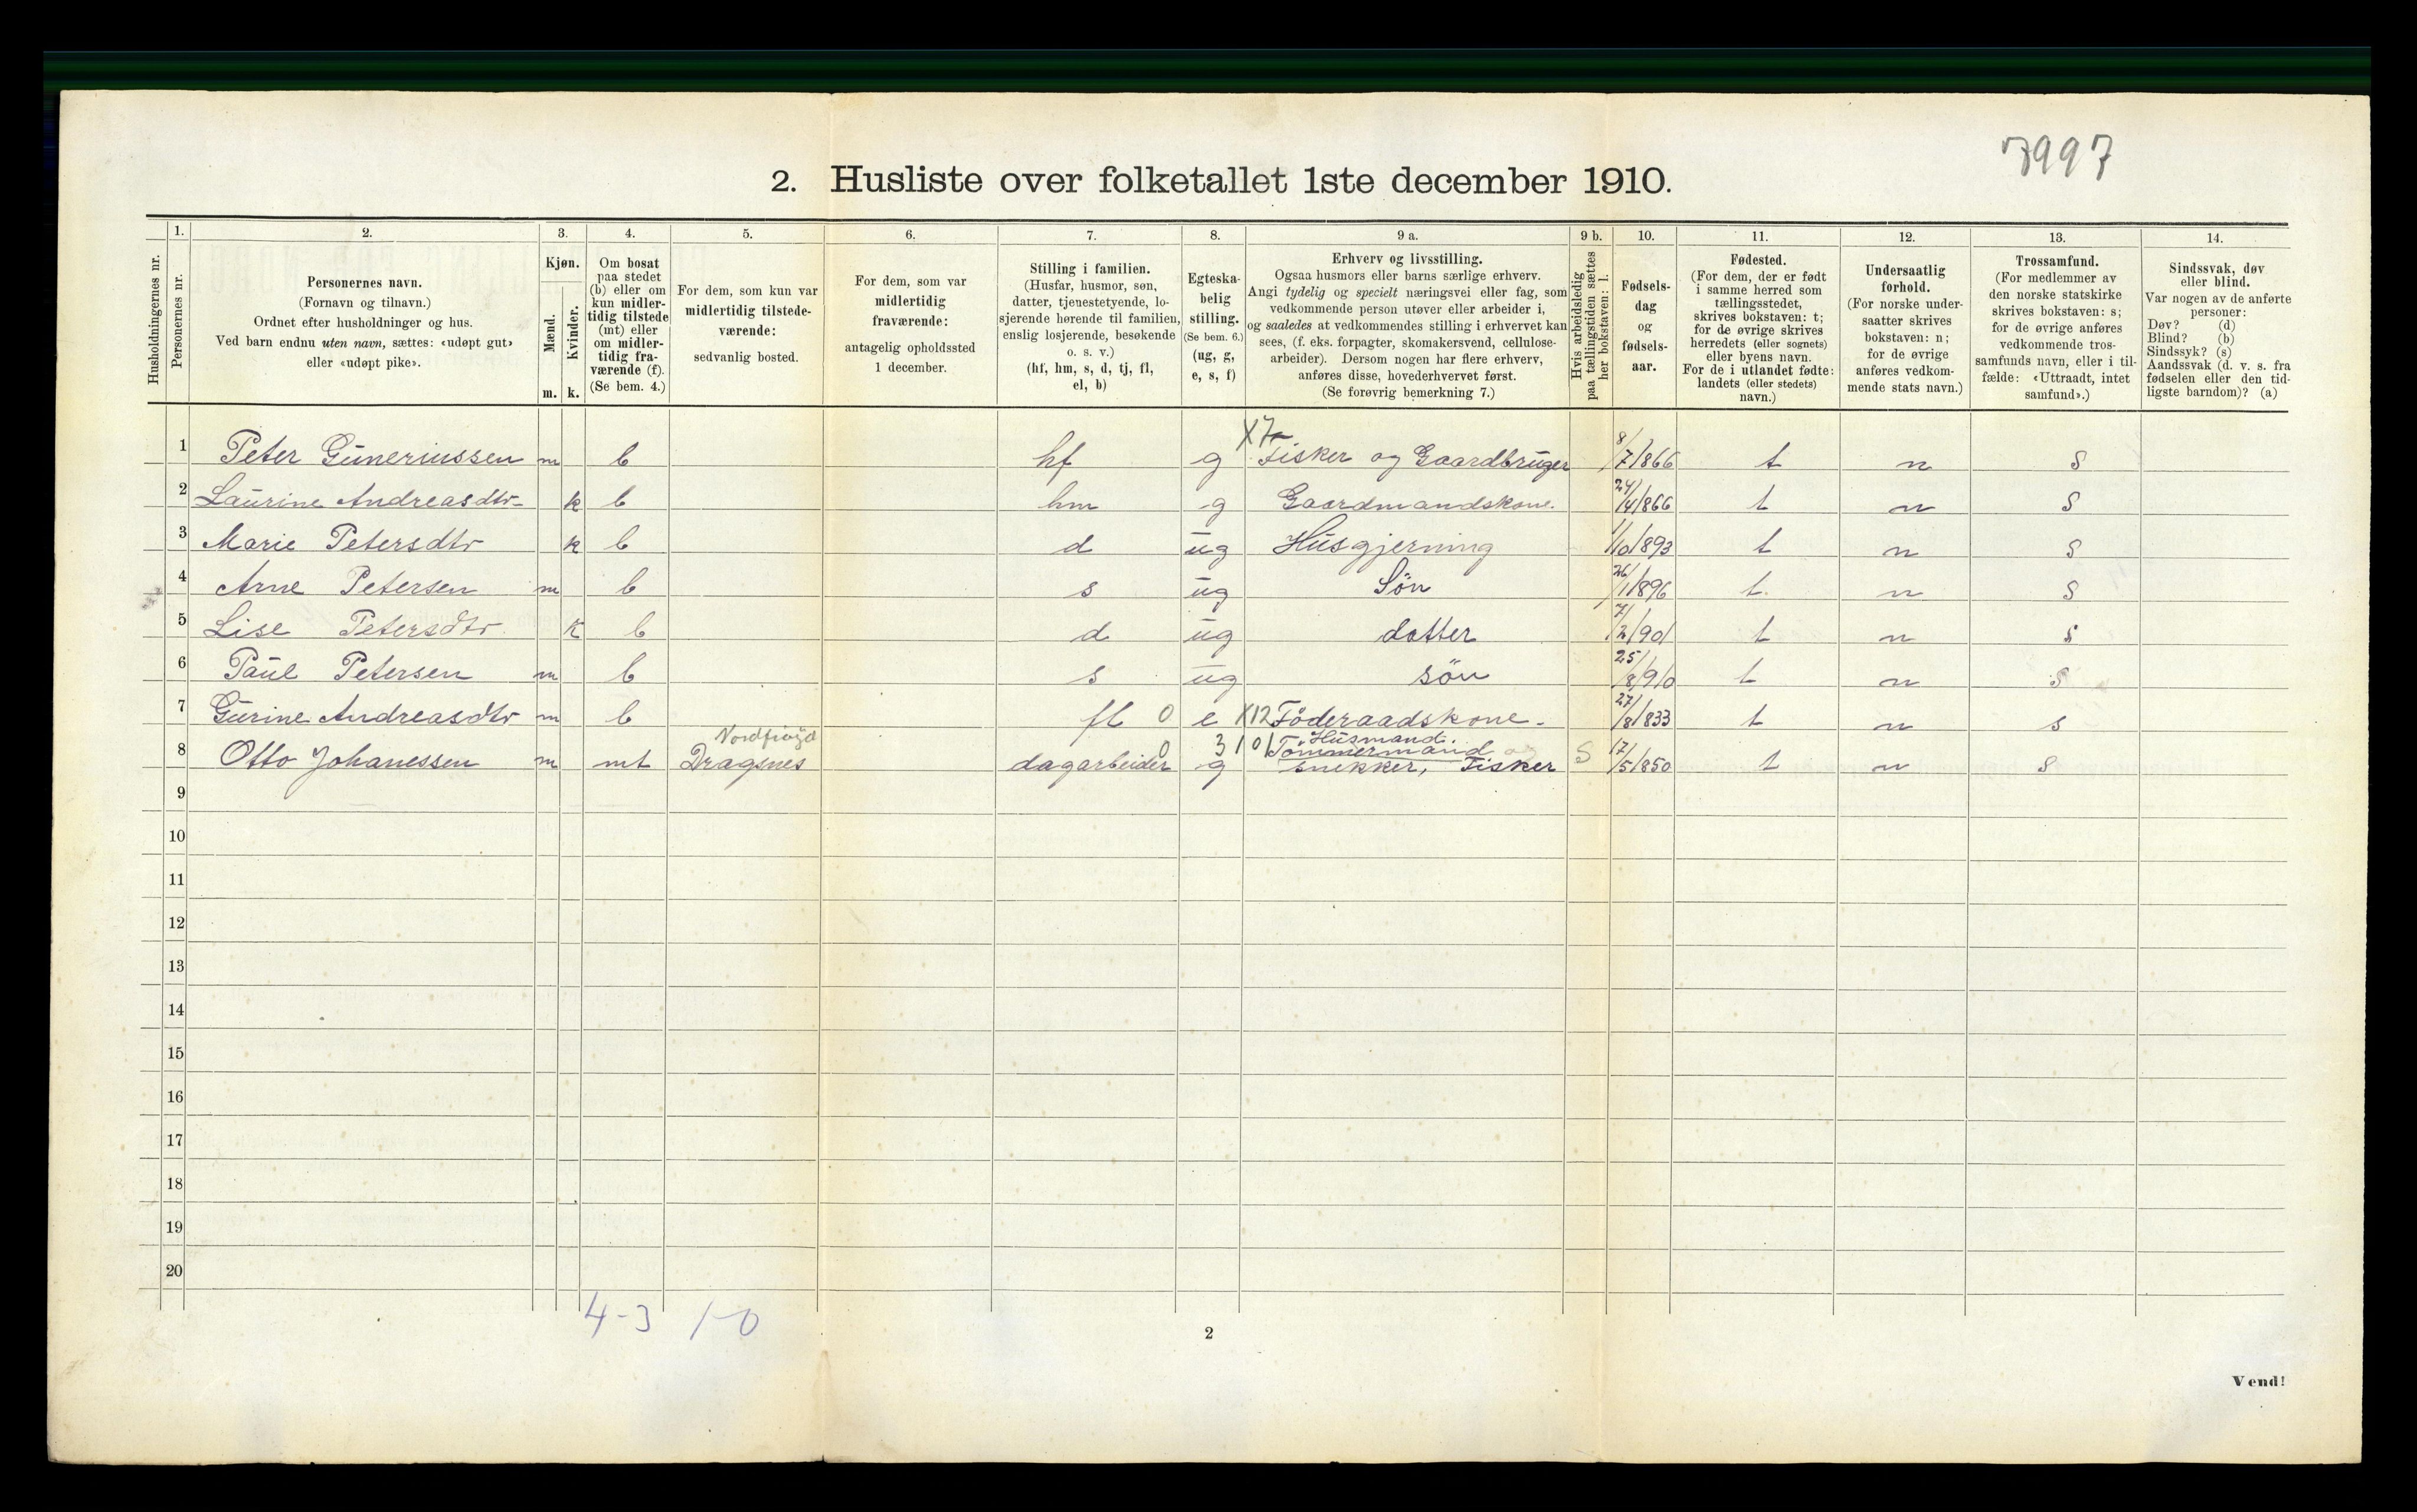 7997
2. Husliste over folketallet 1ste december 1910.
Husholdningernes nr.
1.
Personernes nr.
2.
Personernes navn.
(Fornavn og tilnavn.)
Ordnet efter husholdninger og hus.
Ved barn endnu uten navn, sættes: «udøpt gut»
eller «udøpt pike».
3.
Kjøn.
Mænd.
Kvinder.
m. k.
4.
Om bosat
paa stedet
(b) eller om
kun midler-
tidig tilstede
(mt) eller
om midler-
tidig fra-
værende (f).
(Se bem. 4.)
5.
For dem, som kun var
midlertidig tilstede-
værende:
sedvanlig bosted.
6.
For dem, som var
midlertidig
fraværende:
antagelig opholdssted
1 december.
7.
Stilling i familien.
(Husfar, husmor, søn,
datter, tjenestetyende, lo-
sjerende hørende til familien,
enslig losjerende, besøkende
o. s. v.)
(hf, hm, s, d, tj, fl,
el, b)
8.
Egteska-
belig
stilling.
(Se bem. 6.)
(ug, g,
e, s, f)
9 a.
Erhverv og livsstilling.
Ogsaa husmors eller barns særlige erhverv.
Angi tydelig og specielt næringsvei eller fag, som
vedkommende person utøver eller arbeider i,
og saaledes at vedkommendes stilling i erhvervet kan
sees, (f. eks. forpagter, skomakersvend, cellulose-
arbeider). Dersom nogen har flere erhverv,
anføres disse, hovederhvervet først.
(Se forøvrig bemerkning 7.)
9 b.
Hvis arbeidsledig
paa tællingstiden sættes
her bokstaven: l.
10.
Fødsels-
dag
og
fødsels-
aar.
11.
Fødested.
(For dem, der er født
i samme herred som
tællingsstedet,
skrives bokstaven: t;
for de øvrige skrives
herredets (eller sognets)
eller byens navn.
For de i utlandet fødte:
landets (eller stedets)
navn.)
12.
Undersaatlig
forhold.
(For norske under-
saatter skrives
bokstaven: n;
for de øvrige
anføres vedkom-
mende stats navn.)
13.
Trossamfund.
(For medlemmer av
den norske statskirke
skrives bokstaven: s;
for de øvrige anføres
vedkommende tros-
samfunds navn, eller i til-
fælde: «Uttraadt, intet
samfund».)
14.
Sindssvak, døv
eller blind.
Var nogen av de anførte
personer:
Døv? (d)
Blind? (b)
Sindssyk? (s)
Aandssvak (d. v. s. fra
fødselen eller den tid-
ligste barndom)? (a)
X7
1 Peter Guneriussen m b hf g Fisker og Gaardbruger 8/7/866 t n S
2 Laurine Andreasdtr k b hm g Gaardmandskone. 24/4/866 t n S
3 Marie Petersdtr k b d ug Husgjerning 1/10/893 t n S
4 Arne Petersen m b s ug Sön 26/1/896 t. n S
5 Lise Petersdtr. k b d ug datter 7/2/901 t n S
6 Paul Petersen m b s ug sön 25/8/910 t n S
7 Gurine Andreasdtr m b fl 0 e X12 Föderaadskone. 27/8/833 t n s
Husmand
8 Otto Johanessen m mt Dragsnes dagarbeider 0 g Tömmermand
snekker, Fisker S 17/5/850 t n S
9
10
11
12
13
14
15
16
17
18
19
20
4-3 1-0
2
Vend!